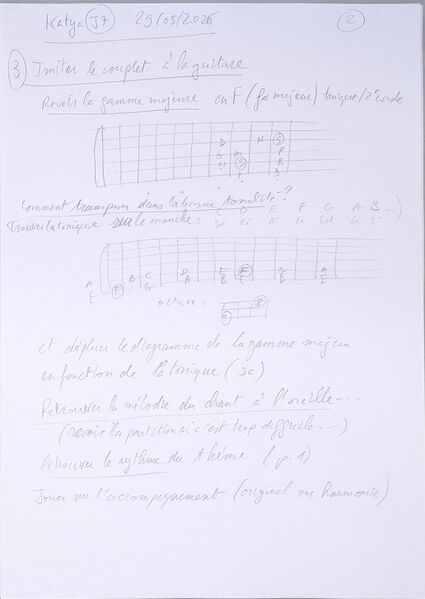 Katya J7 29/05/2026 2
3 Imiter le couplet à la guitare
Revoir la gamme majeure en F (fa majeur) tonique/2e corde
D N S
G m P
N S R
P D
Comment transposer dans la bonne tonalité ?
C D E F G A B =)
Trouver la tonique sur le manche = Do Ré Mi Fa Sol La Si
B C D E F G A
A G A B C D E
E F
octave = 8
et déplacer le diagramme de la gamme majeur
en fonction de la tonique (3a)
Retrouver la mélodie du chant à l'oreille ---
(revoir la partition si c'est trop difficile ---)
Retrouver le rythme du thème (p.1)
Jouer sur l'accompagnement (original ou harmonie)